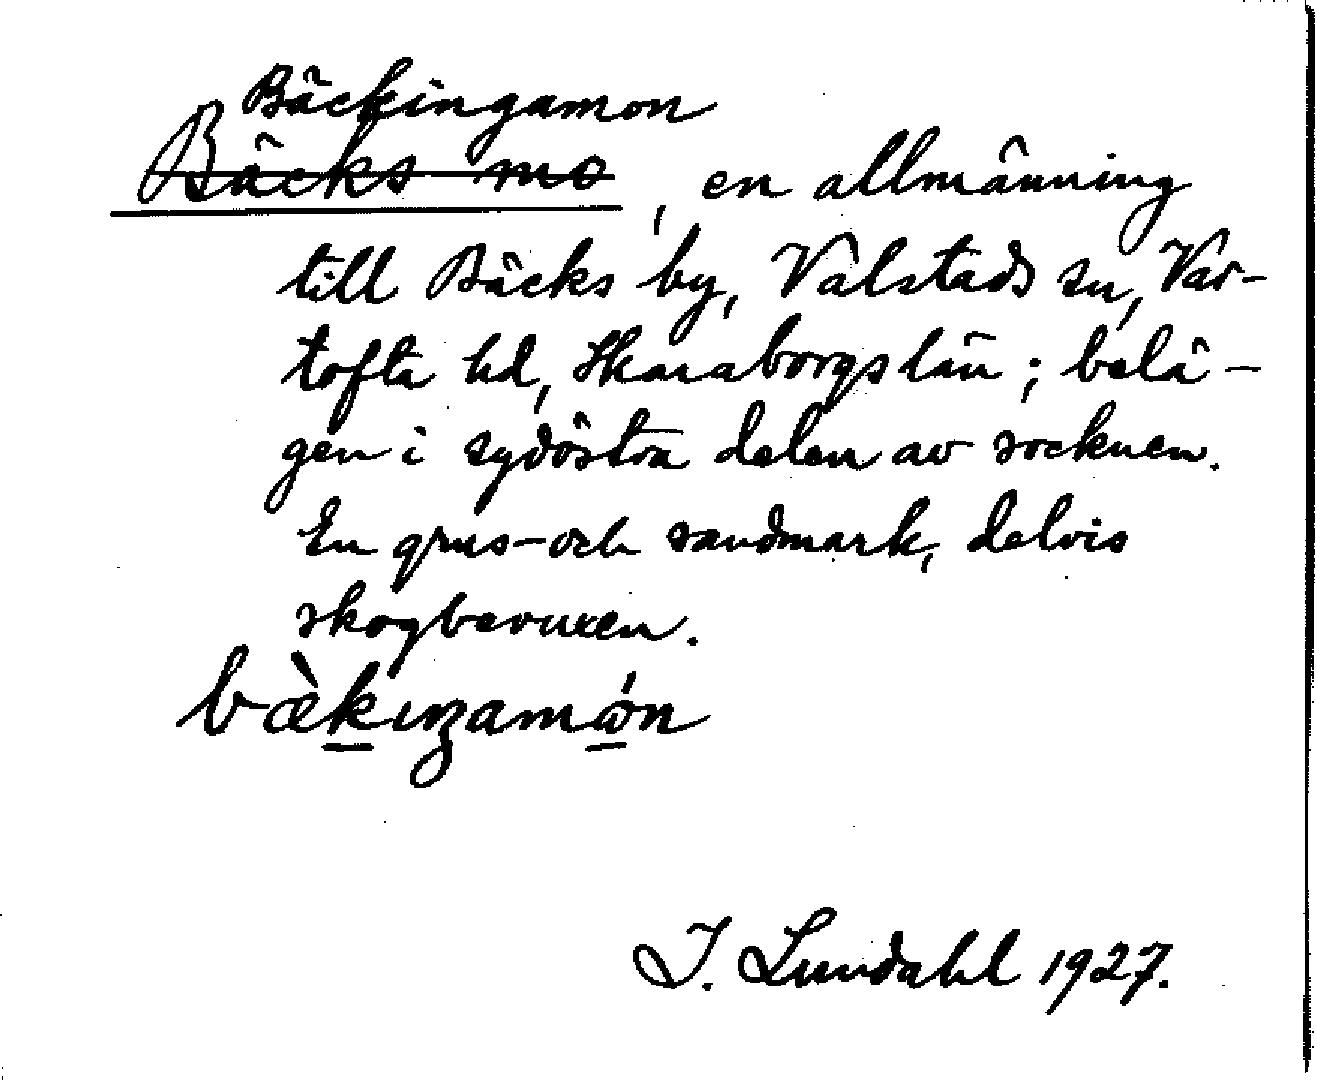 Bäckingamon
Bäcks mo, en allmänning
till Bäcks by, Valstads sn, Var-
tofta hd, Skaraborgs län; belä-
gen i sydöstra delen av socknen.
En grus- och sandmark, delvis
skogbevuxen.
bæ̀kıŋamón
I. Lundahl 1927.